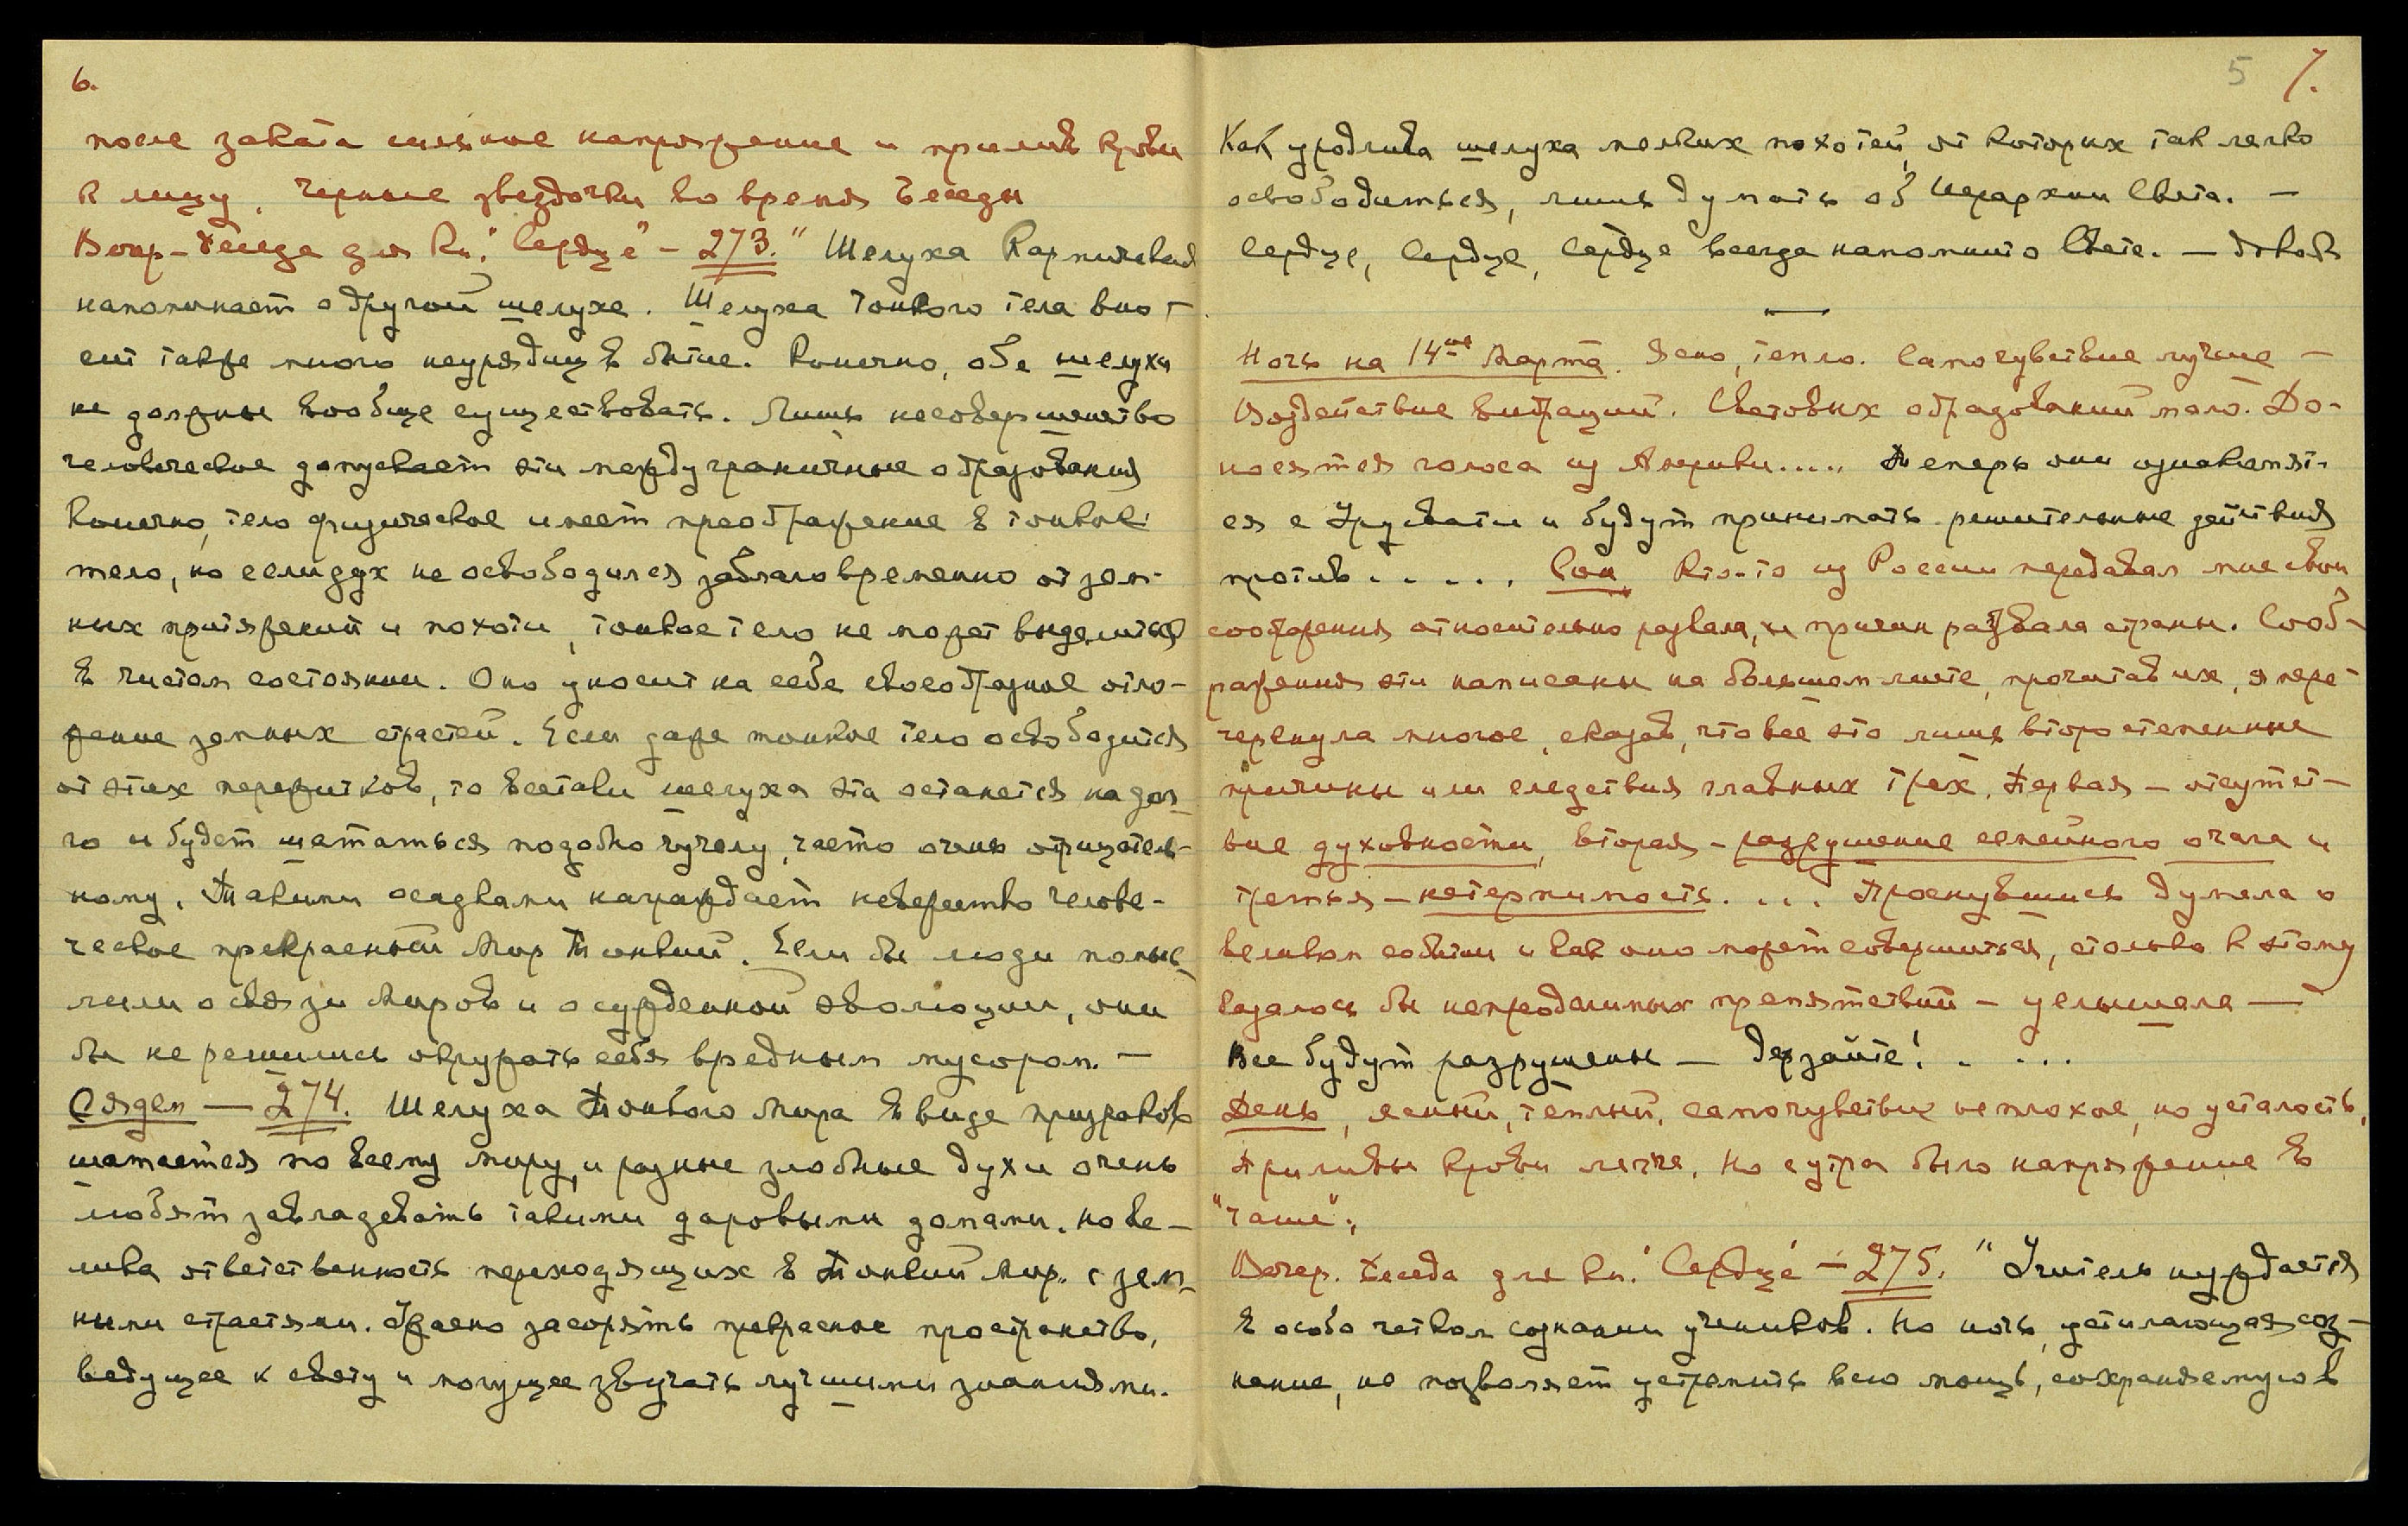 6.
после заката сильное напряжение и прилив крови
к лицу. Черные звездочки во время Беседы
Вечер - Беседа для кн. "Сердце" - 273. " Шелуха Кармическая
напоминает о другой шелухе. Шелуха Тонкого тела вно-
сит также много неурядиц в бытие. Конечно, обе шелухи
не должны вообще существовать. Лишь несовершенство
человеческое допускает эти междуграничные образования
Конечно, тело физическое имеет преображение в тонкое
тело, но если дух не освободился заблаговременно от зем-
ных притяжений и похоти, тонкое тело не может выделиться
в чистом состоянии. Оно уносит на себе своеобразное отло-
жение земных страстей. Если даже тонкое тело освободится
от этих пережитков, то всетаки шелуха эта останется надол-
го и будет шататься подобно чучелу, часто очень отрицатель-
ному. Такими осадками награждает невежество челове-
ческое прекрасный Мир Тонкий. Если бы люди помыс-
лили о связи Миров и о сужденной эволюции, они
бы не решились окружать себя вредным мусором. —
Рядем — 274. Шелуха Тонкого Мира в виде призраков
шатается по всему миру, и разные злобные духи очень
любят завладевать такими даровыми домами. Но ве-
лика ответственность переходящих в Тонкий Мир. с зем-
ными страстями. Ужасно засорять прекрасное пространство,
ведущее к свету и могущее звучать лучшими знаниями.
5 7.
Как уродлива шелуха мелких похотей, от которых так легко
освободиться, лишь думать об Иерархии Света. —
Сердце, Сердце, Сердце всегда напомнит о Свете. — Довольно
—
Ночь на 14ое Марта. Ясно, тепло. Самочувствие лучше —
Воздействие вибраций. Световых образований мало. До-
носятся голоса из Америки..... Теперь они ознакомят-
ся с Урусвати и будут принимать решительные действия
против ..... Сон. Кто-то из России передавал мне свои
соображения относительно развала, и причин развала страны. Сооб-
ражения эти написаны на большом листе, прочитав их, я пере-
черкнула многое, сказав, что все это лишь второстепенные
причины или следствия главных трех. Первая — отсутст-
вие духовности, вторая - разрушение семейного очага и
третья - нетерпимость. ... Проснувшись думала о
великом событии и как оно может совершиться, столько к этому
казалось бы непреодолимых препятствий — услышала —
Все будут разрушены — Дерзайте! . ...
День, ясный, теплый, самочувствие неплохое, но усталость.
Приливы крови легче. Но с утра было напряжение в
"чаше".
Вечер. Беседа для кн. "Сердце" — 275. " Учитель нуждается
в особо четком сознании учеников. Но ночь, утомляющая соз-
нание, не позволяет устремить всю мощь, сохраняемую в